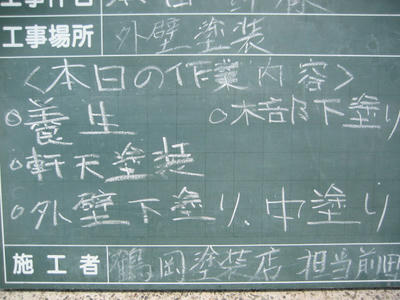 工事場所 外壁塗装
〈本日の作業内容〉
○養生 ○木部下塗り
○軒天塗装
○外壁下塗り、中塗り
施工者 鶴岡塗装店 担当前田